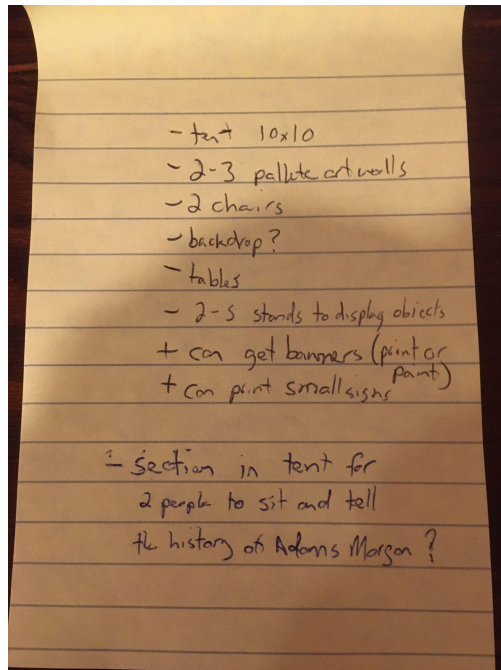 - tent 10x10
- 2-3 pallete art walls
- 2 chairs
- backdrop?
- tables
- 2-5 stands to display objects
+ can get banners (print or
paint)
+ can print small signs
- section in tent for
2 people to sit and tell
the history of Adams Morgan?